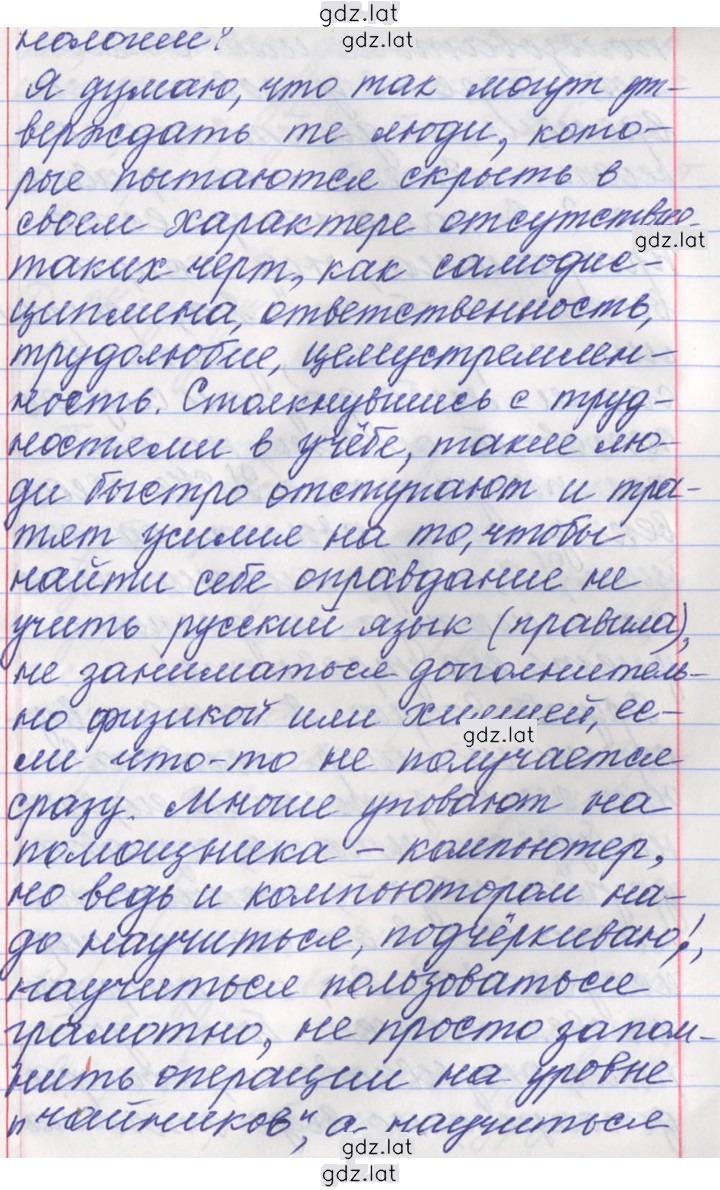 gdz.lat
gdz.lat
Я думаю, что так могут ут-
верждать те люди, кото-
рые пытаются скрыть в
своем характере отсутствие
gdz.lat
таких черт, как самодис-
циплина, ответственность,
трудолюбие, целеустремлен-
ность. Столкнувшись с труд-
ностями в учёбе, такие лю-
ди быстро отступают и тра-
тят усилия на то, чтобы
найти себе оправдание не
учить русский язык (правила),
не заниматься дополнитель-
но физикой или химией, ес-
gdz.lat
ли что-то не получается
сразу. Многие уповают на
помощника – компьютер,
но ведь и компьютором на-
до научиться, подчёркиваю!,
научиться пользоваться
грамотно, не просто запом-
нить операции на уровне
„чайников", а научиться
gdz.lat
gdz.lat